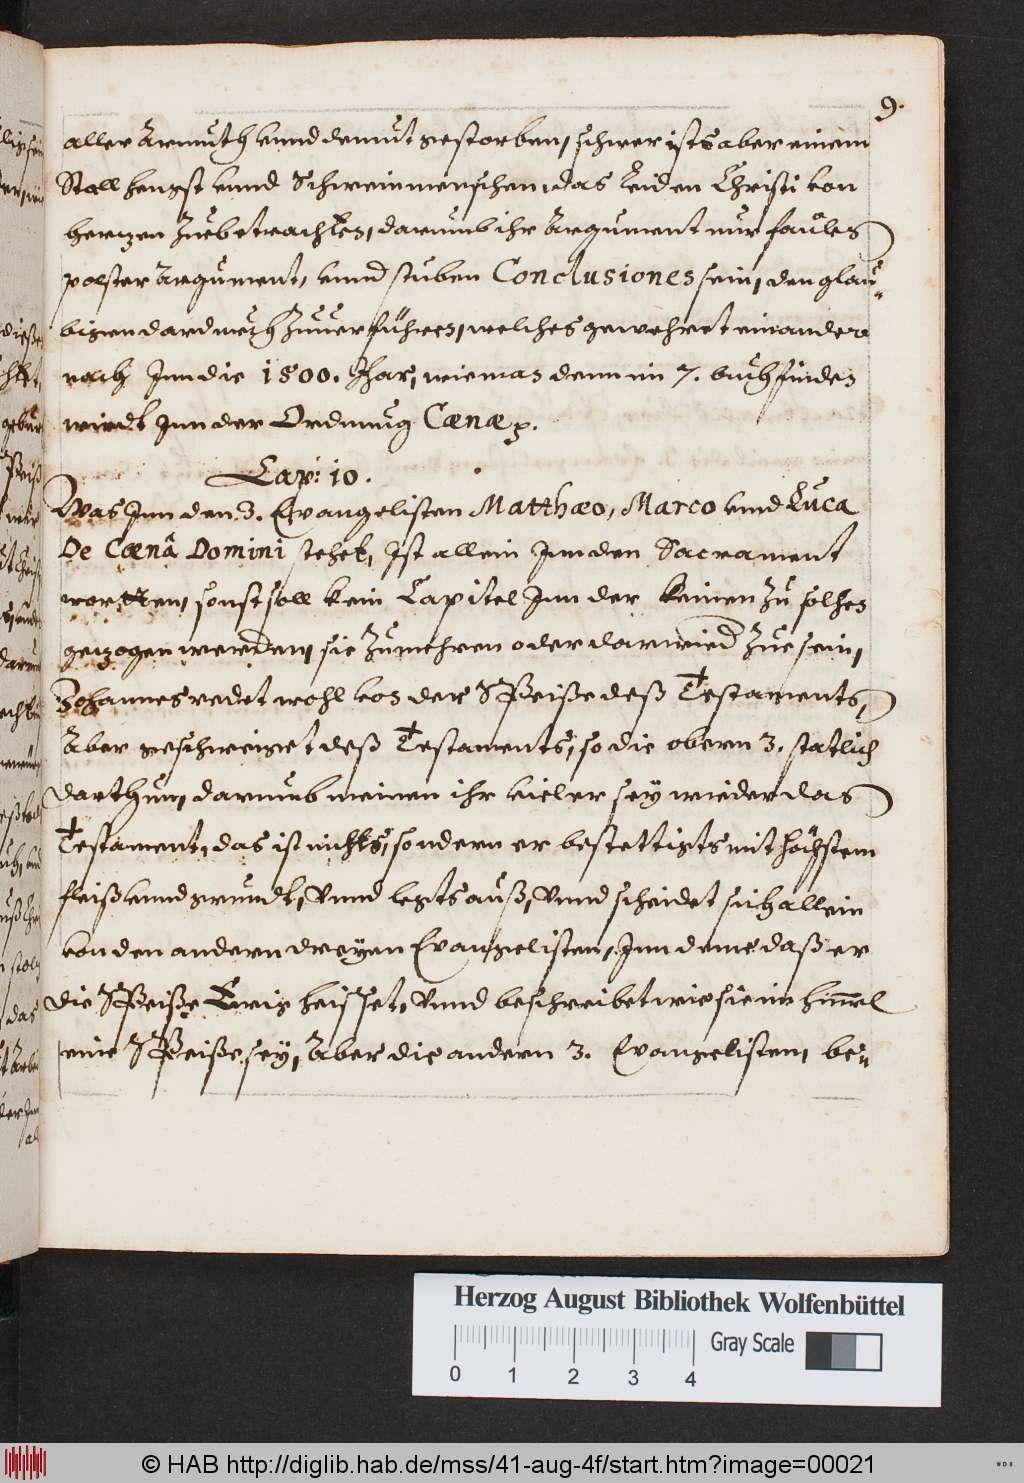 9.
aller Armuth vnnd demut gestorben, schwer ists aber einem
Stall hengst vnnd Schweinmenschen, das Leiden Christi von
hertzen Zuebetrachten, darumb ihr Argument nur faules
polster Argument, vnnd stuben Conclusiones sein, den glau-
bigen dardurch Zuuerführen, welches gewehret ein ander
nach Inn die 1500. Jhar, wie man denn im 7. buch finden
wirdt Inn der Ordnung Cænæ.
Cap: 10.
Was Inn den 3. Evangelisten Matthæo, Marco vnnd Luca
De Cænâ Domini stehet, Ist allein Inn den Sacrament
wortten, sonst soll kein Capitel Inn der keinen Zu solhen
gezogen werden, sie Zumehren oder darwied Zue sein,
Johannes redet wohl von der Speiße deß Testaments,
Aber geschweiget deß Testaments, so die obern 3. statlich
darthun, darumb meinen ihr viel er sey wieder das
Testament, das ist nichts, sondern er bestettigts mit höchstem
fleiß vnnd grundt, Vnnd legts auß, Vnnd scheidet sich allein
von den andern dreyen Evangelisten, Inn deme daß er
die Speiße Ewig heisset, Vnnd beschreibet wie sie im himel
eine Speiße sey, Aber die andern 3. Evangelisten, be-
Herzog August Bibliothek Wolfenbüttel
Gray Scale
0 1 2 3 4
© HAB http://diglib.hab.de/mss/41-aug-4f/start.htm?image=00021